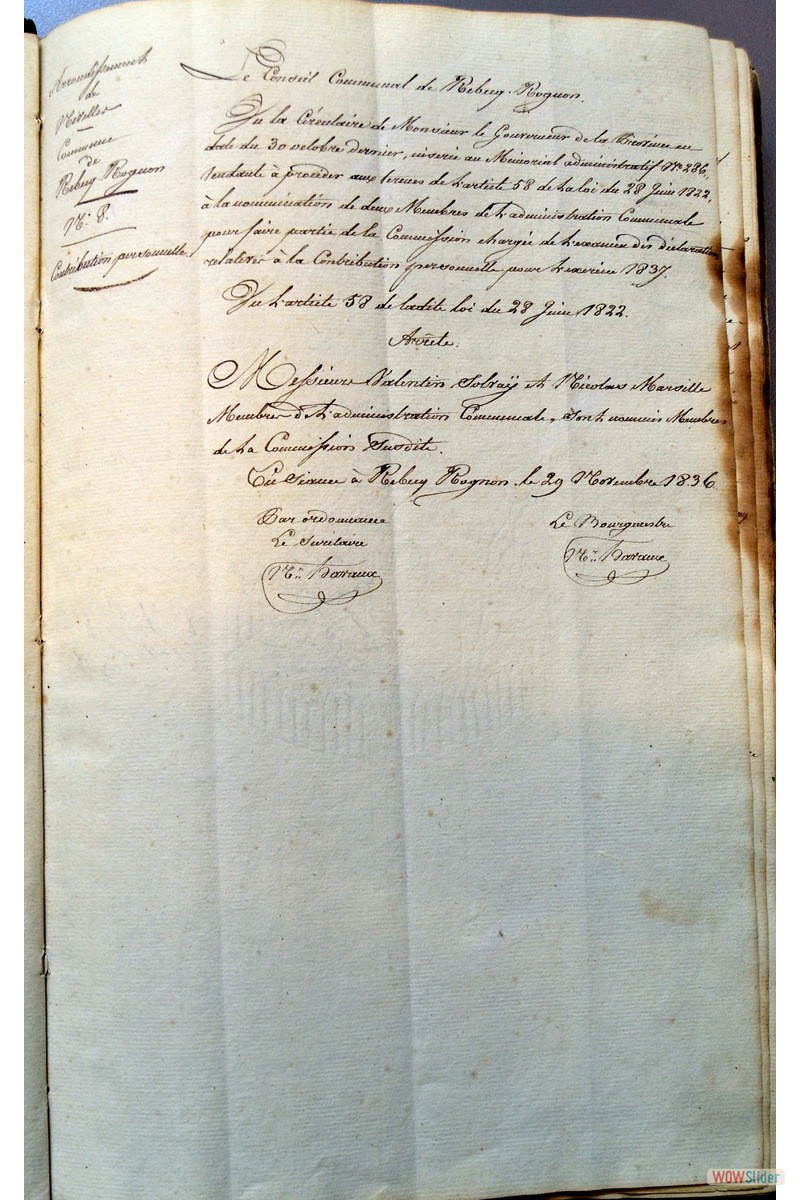 Arrondissement
de
Nivelles
Commune
de
Rebecq Rognon
N.° 8.
Contribution personnelle
Le Conseil Communal de Rebecq-Rognon.
Vu la Circulaire de Monsieur le Gouverneur de la Province en
date du 30 octobre dernier, inserée au Mémorial administratif N° 286,
tendante à procéder aux termes de l'article 58 de la loi du 28 Juin 1822,
à la nomination de deux Membres de l'administration Communale
pour faire partie de la Commission chargée de l'examen des déclarations
relatives à la Contribution personnelle pour l'exercice 1837.
Vu l'article 58 de ladite loi du 28 Juin 1822.
Arrête.
Messieurs Valentin et Nicolas Marsille
Membres de l'administration Communale, sont nommés Membres
de la Commission Susdite.
En Séance à Rebecq Rognon le 29 Novembre 1836
Par ordonnance
Le Secrétaire
Le Bourguestre
WOWSlider